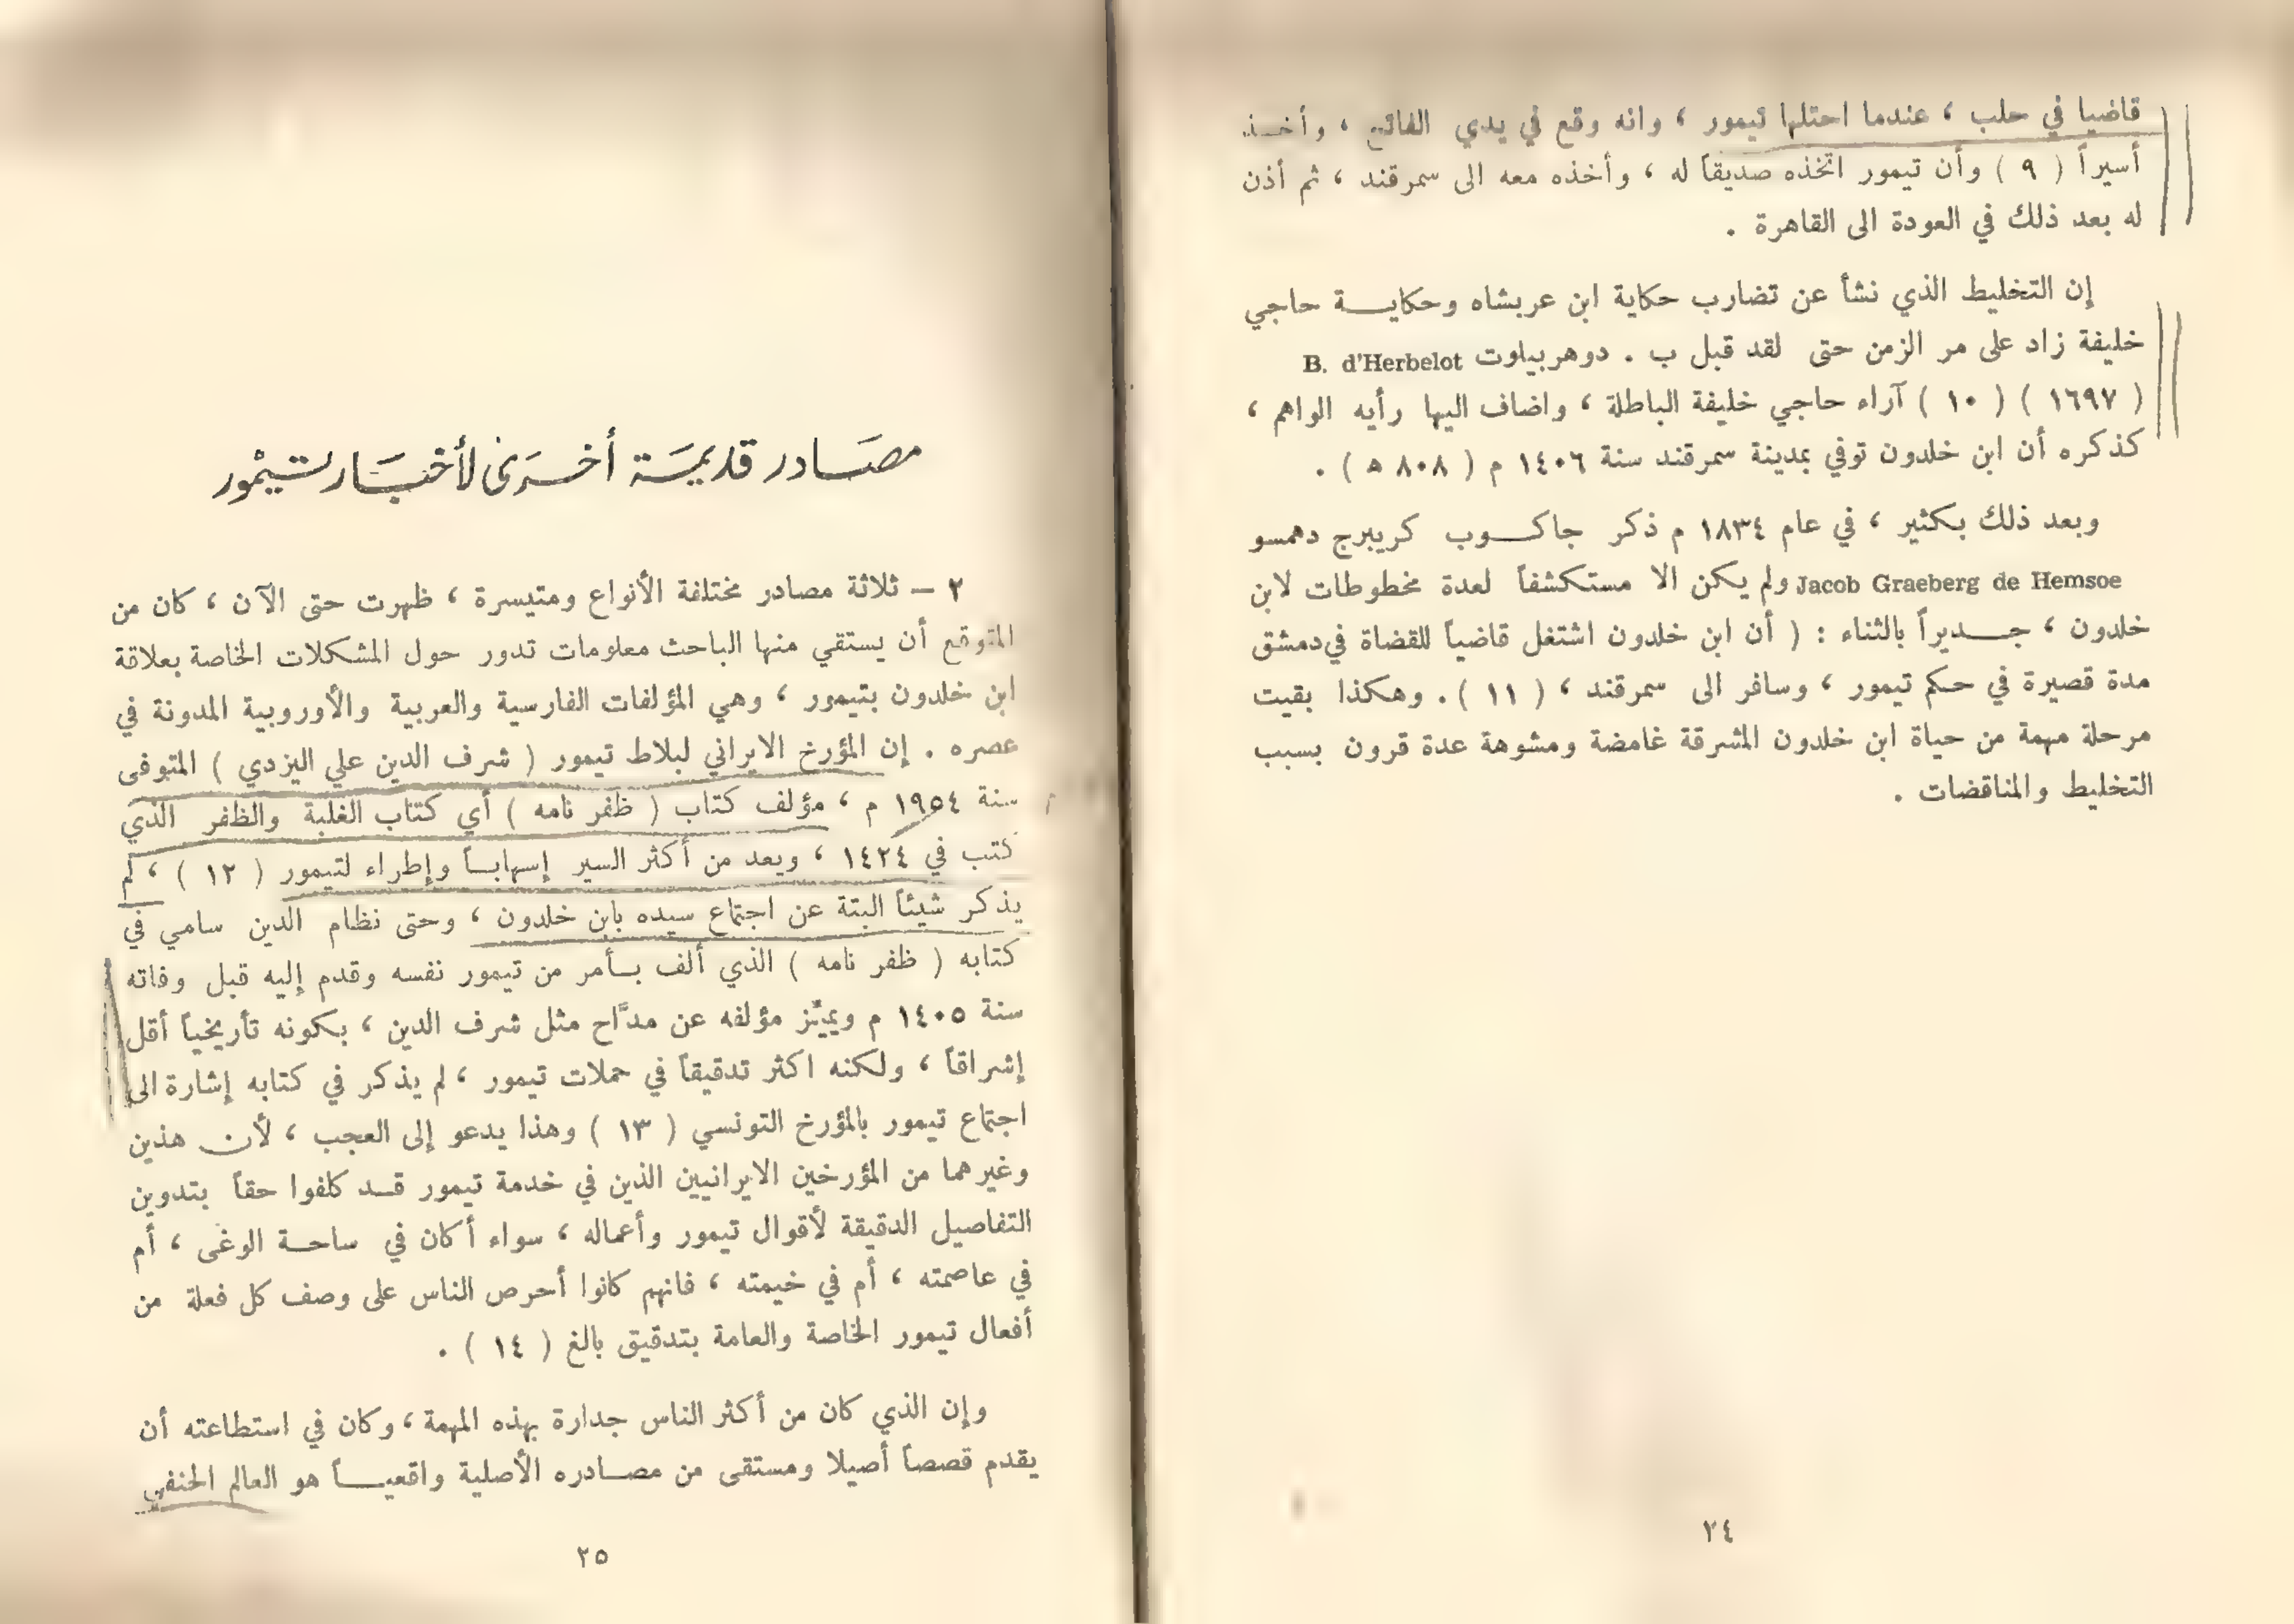 قاضيا في حلب ، عندما احتلها تيمور ، وانه وقع في يدي الفاتح ، وأخــذ
أسيراً ( ٩ ) وأن تيمور اتخذه صديقاً له ، وأخذه معه الى سمرقند ، ثم أذن
له بعد ذلك في العودة الى القاهرة .
إن التخليط الذي نشأ عن تضارب حكاية ابن عربشاه وحكايــة حاجي
خليفة زاد على مر الزمن حتى لقد قبل ب . دوهربيلوت B. d'Herbelot
( ١٦٩٧ ) ( ١٠ ) آراء حاجي خليفة الباطلة ، واضاف اليها رأيه الواهم ،
كذكره أن ابن خلدون توفي بمدينة سمرقند سنة ١٤٠٦ م ( ٨٠٨ ه ) .
وبعد ذلك بكثير ، في عام ١٨٣٤ م ذكر جاكــوب كريبرج دهمسو
Jacob Graeberg de Hemsoe ولم يكن الا مستكشفاً لعدة مخطوطات لابن
خلدون ، جــديراً بالثناء : ( أن ابن خلدون اشتغل قاضياً للقضاة في دمشق
مدة قصيرة في حكم تيمور ، وسافر الى سمرقند ، ( ١١ ) . وهكذا بقيت
مرحلة مهمة من حياة ابن خلدون المشرقة غامضة ومشوهة عدة قرون بسبب
التخليط والمناقضات .
٢٤
مصَادر قديمَة أخرَى لأخبَار تيمْور
٢ – ثلاثة مصادر مختلفة الأنواع ومتيسرة ، ظهرت حتى الآن ، كان من
المتوقع أن يستقي منها الباحث معلومات تدور حول المشكلات الخاصة بعلاقة
ابن خلدون بتيمور ، وهي المؤلفات الفارسية والعربية والأوروبية المدونة في
عصره . إن المؤرخ الايراني لبلاط تيمور ( شرف الدين علي اليزدي ) المتوفى
سنة ١٩٥٤ م ، مؤلف كتاب ( ظفر نامه ) أي كتاب الغلبة والظفر الذي
كتب في ١٤٢٤ ، ويعد من أكثر السير إسهابــاً وإطراء لتيمور ( ١٢ ) ، لم
يذكر شيئاً البتة عن اجتماع سيده بابن خلدون ، وحتى نظام الدين سامي في
كتابه ( ظفر نامه ) الذي ألف بــأمر من تيمور نفسه وقدم إليه قبل وفاته
سنة ١٤٠٥ م ويميّز مؤلفه عن مدَّاح مثل شرف الدين ، بكونه تأريخياً أقل
إشراقاً ، ولكنه اكثر تدقيقاً في حملات تيمور ، لم يذكر في كتابه إشارة الى
اجتماع تيمور بالمؤرخ التونسي ( ١٣ ) وهذا يدعو إلى العجب ، لأن هذين
وغيرهما من المؤرخين الايرانيين الذين في خدمة تيمور قــد كلفوا حقاً بتدوين
التفاصيل الدقيقة لأقوال تيمور وأعماله ، سواء أكان في ساحــة الوغى ، أم
في عاصمته ، أم في خيمته ، فانهم كانوا أحرص الناس على وصف كل فعلة من
أفعال تيمور الخاصة والعامة بتدقيق بالغ ( ١٤ ) .
وإن الذي كان من أكثر الناس جدارة بهذه المهمة ، وكان في استطاعته أن
يقدم قصصاً أصيلا ومستقى من مصــادره الأصلية واقعيــاً هو العالم الحنفي
٢٥